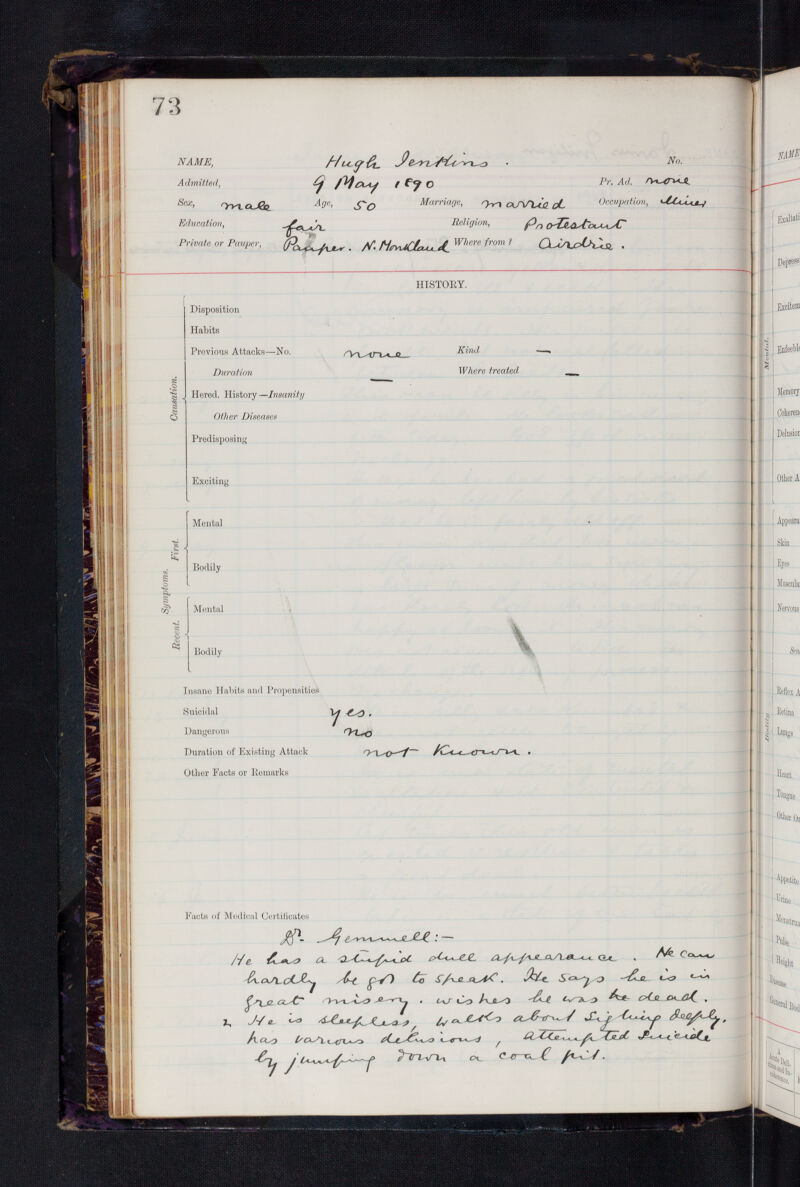 73
NAME, Hugh Jenkins . No.
Admitted, 9 May 1890 Pr. Ad. none
Sex, male Age, 50 Marriage, married Occupation, Miner
Education, fair Religion, Protestant
Private or Pauper, Pauper. N. Monkland Where from? Airdrie .
HISTORY.
Causation.
Disposition
Habits
Previous Attacks—No. none Kind —
Duration — Where treated —
Hered. History—Insanity
Other Diseases
Predisposing
Exciting
Symptoms.
First.
Mental
Bodily
Recent.
Mental
Bodily
Insane Habits and Propensities
Suicidal yes.
Dangerous no
Duration of Existing Attack not known .
Other Facts or Remarks
Facts of Medical Certificates
Dr. Gemmell :—
He has a stupid dull appearance . He can
hardly be got to speak. He says he is in
great misery . wishes he was be dead .
2 He is sleepless, walks about sighing deeply,
has various delusions , attempted suicide
by jumping down a coal pit.
NAME
Exaltati
Depress
Excitem
Enfeeble
Mental.
Memory
Coheren
Delusion
Other A
Appeara
Skin
Eyes
Muscula
Nervous
Sen
Reflex A
Retina
Lungs
Bodily
Heart
Tongue
Other Or
Appetite
Urine
Menstrua
Pulse
Height
Disease
General Bod